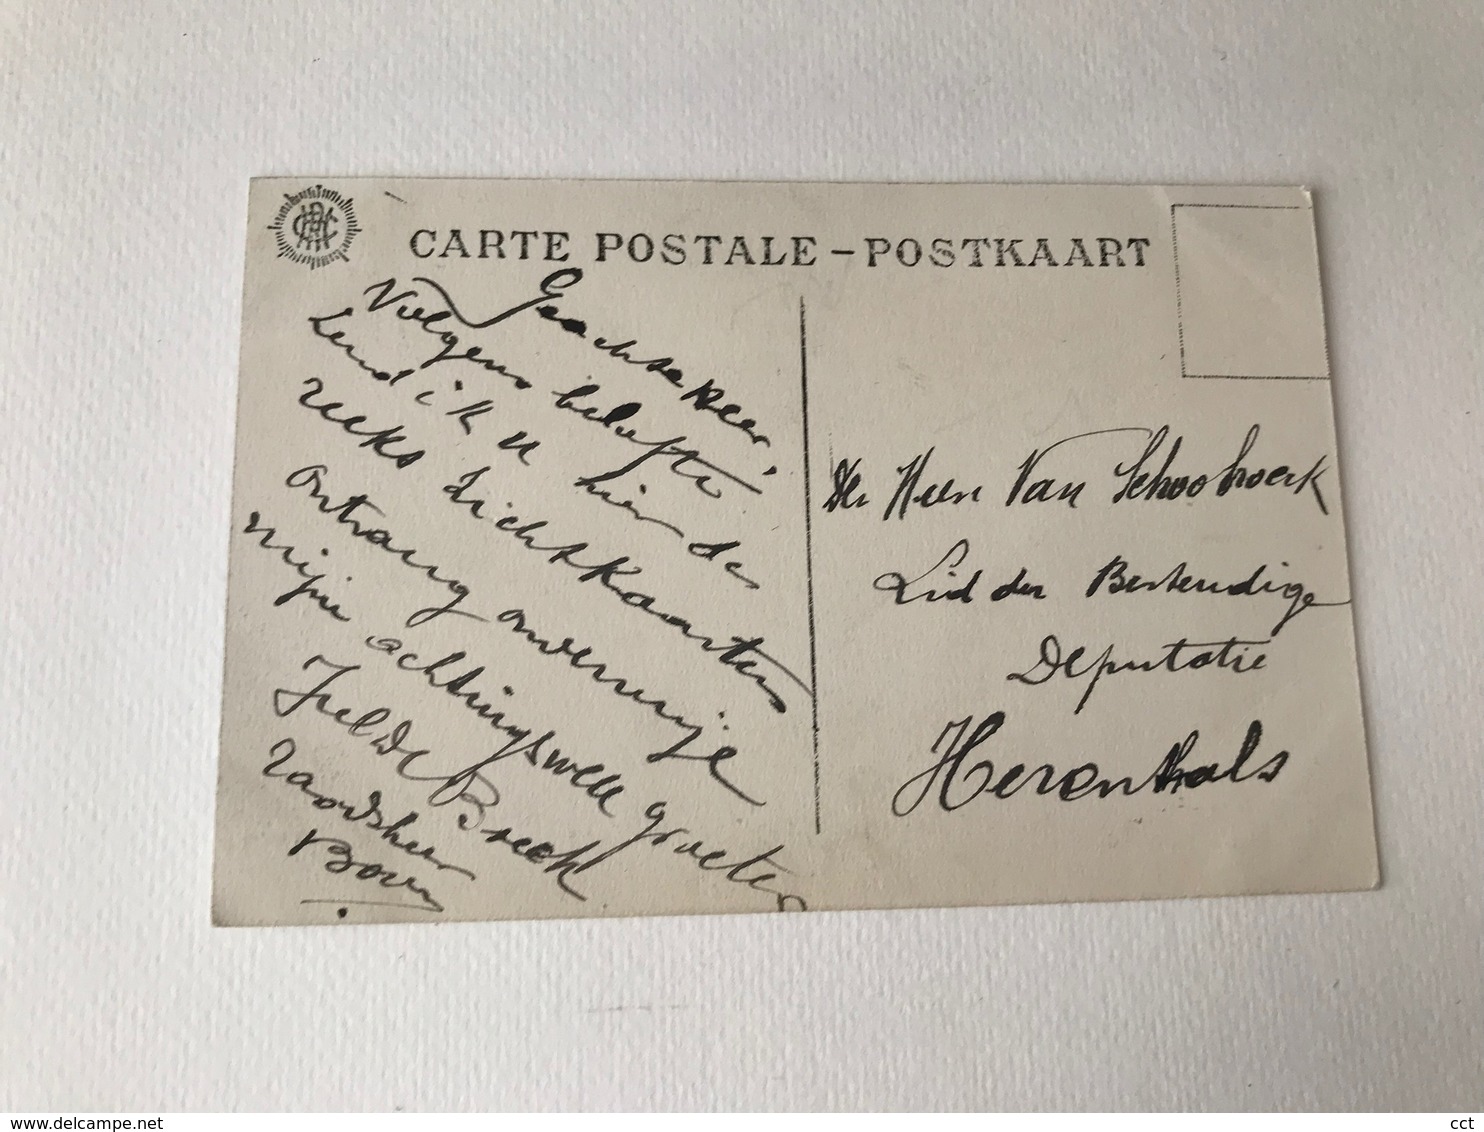 CARTE POSTALE – POSTKAART
Geachte Heer,
Volgens belofte
zend ik u hier de
reeks zichtkaarten
ontvang onverwijle
mijne achtingsvolle groeten
Jul De Breek
raadsheer
Den Heer Van Schoobroeck
Lid der Bestendige
Deputatie
Herenthals
delcampe.net
cct